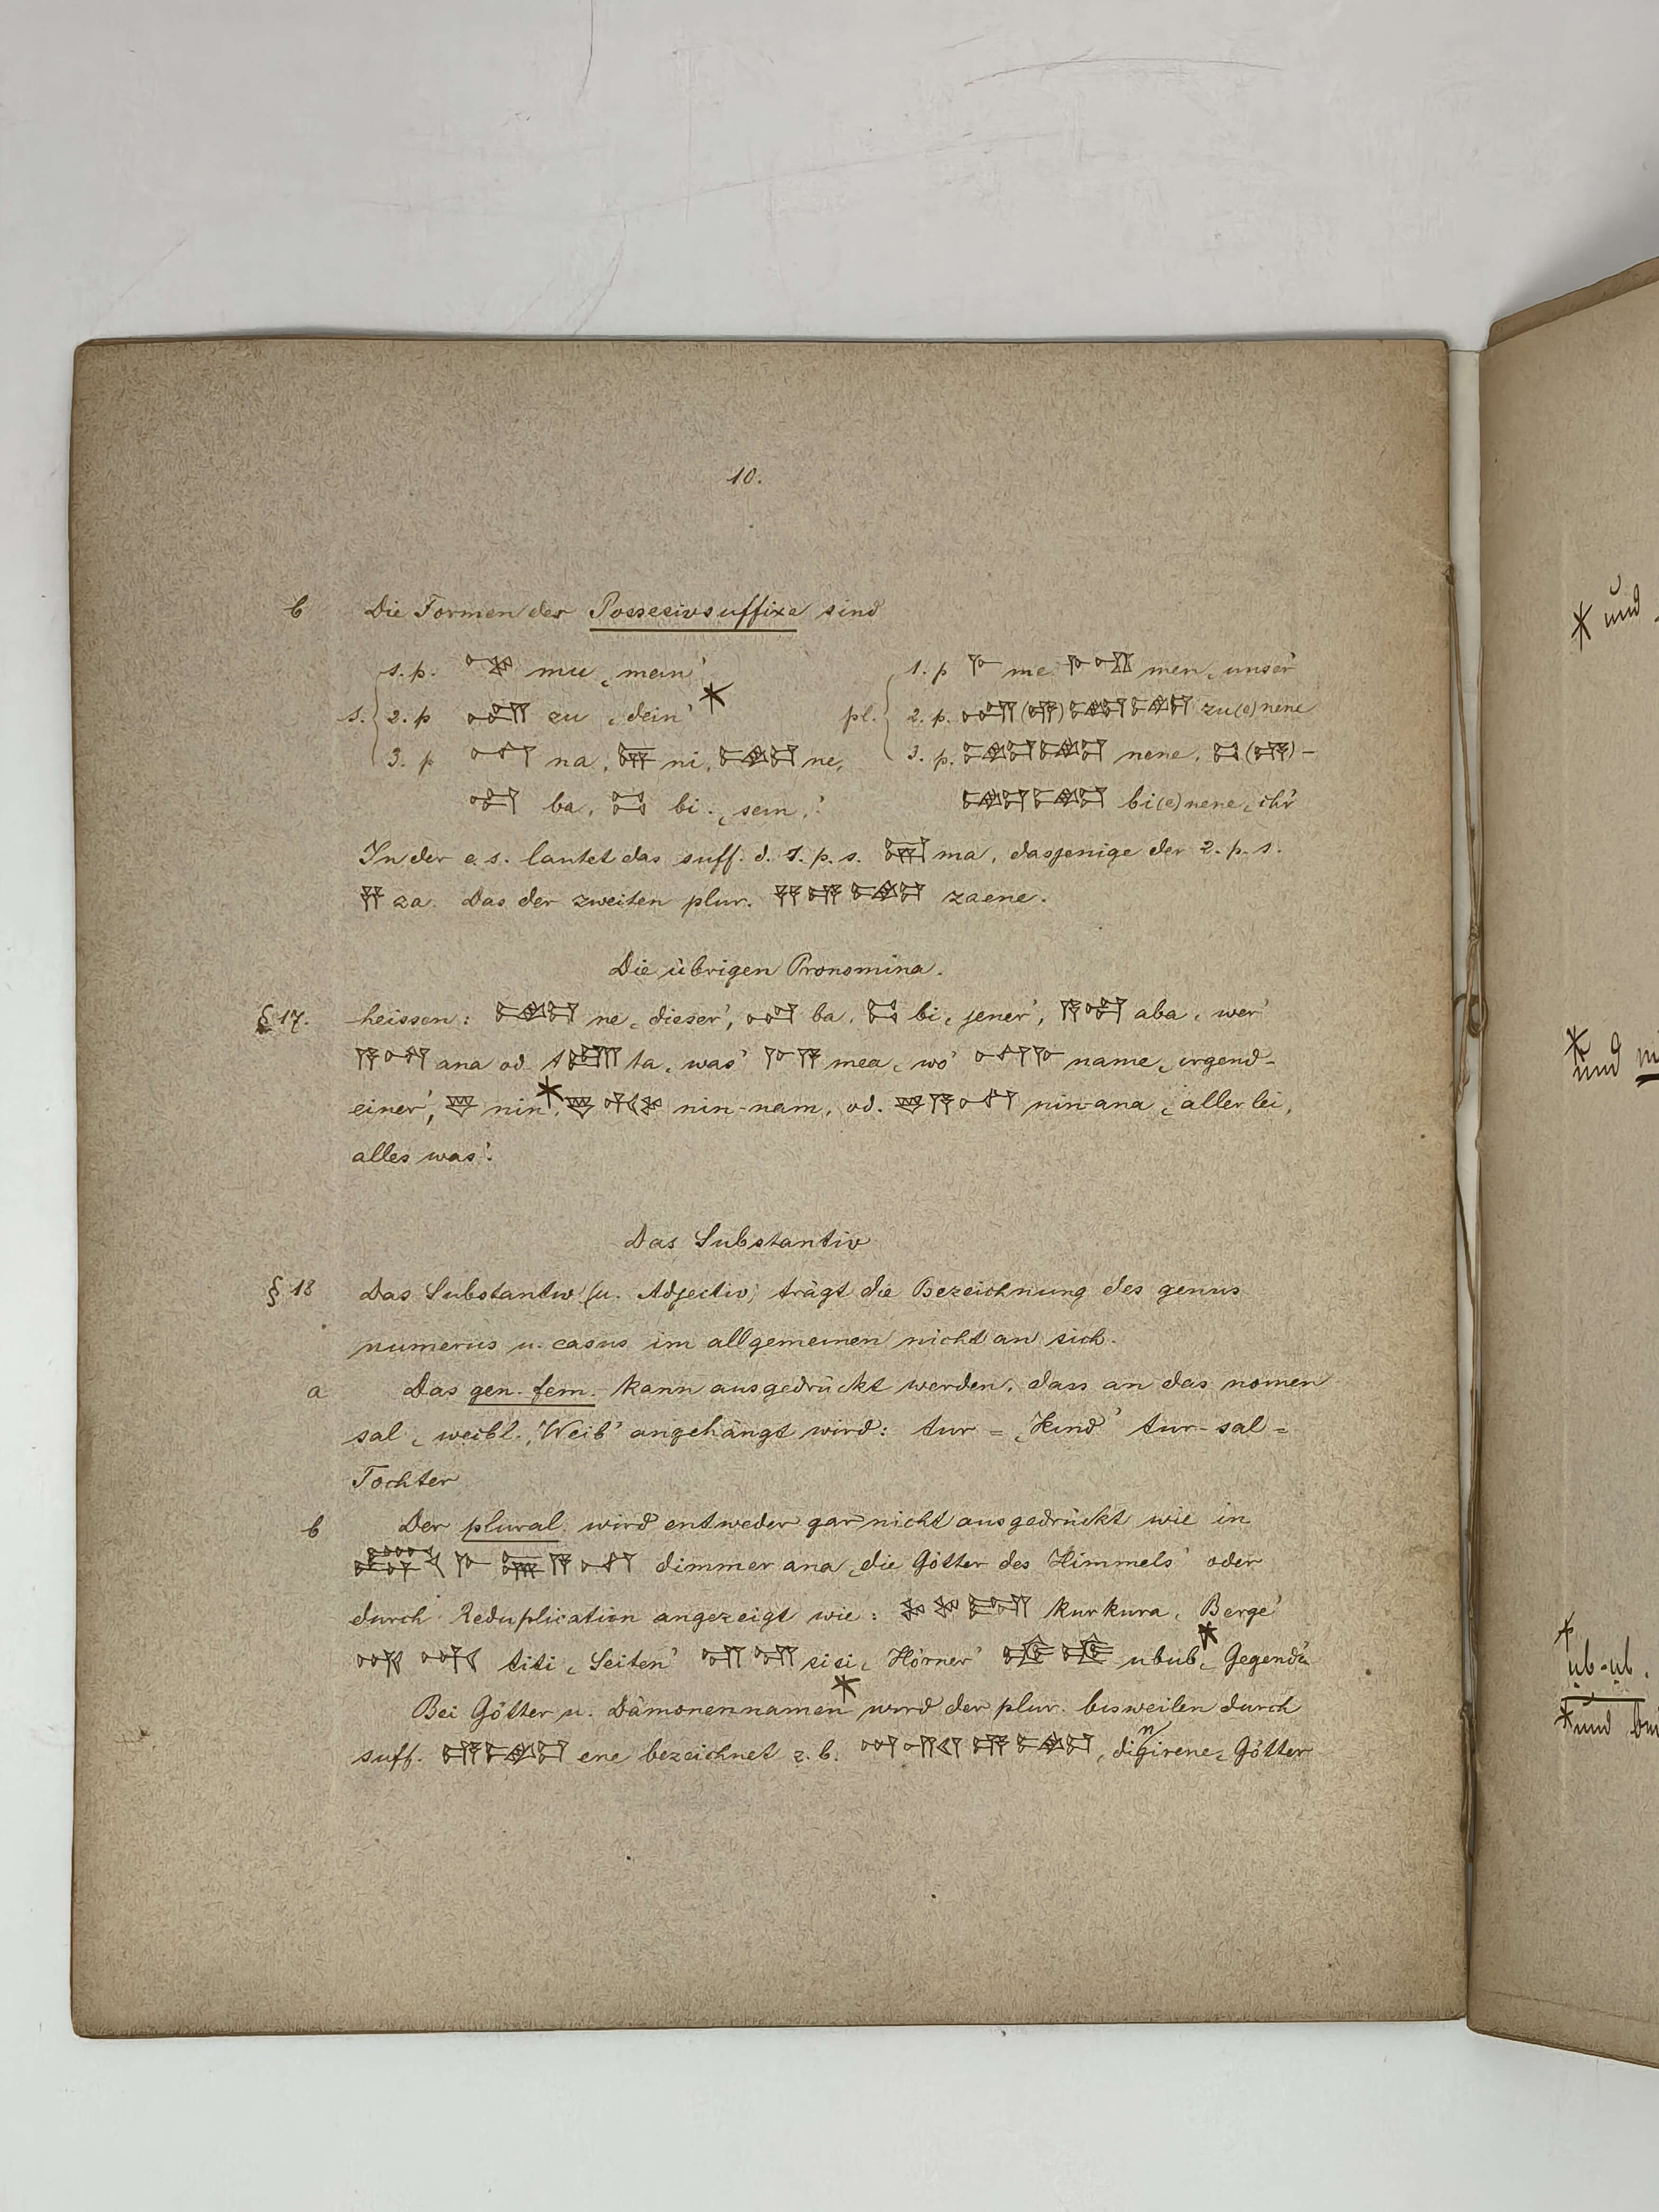 10.
b Die Formen der Possesivsuffixe sind
s. 1. p. 𒈬 mu ‚mein’
2. p 𒍪 zu ‚dein’ *
3. p 𒈾 na, 𒉌 ni, 𒉈 ne,
𒁀 ba, 𒁉 bi. ‚sein,’
pl. 1. p 𒈨 me 𒈨𒂗 men ‚unser’
2. p. 𒍪(𒂊)𒉈𒉈 zu(e)nene
3. p. 𒉈𒉈 nene, 𒁉(𒂊)-
𒉈𒉈 bi(e)nene ‚ihr’
In der e. s. lautet das suff. d. 1. p. s. 𒈠 ma, dasjenige der 2. p. s.
𒍝 za. Das der zweiten plur. 𒍝𒂊𒉈 zaene.
Die übrigen Pronomina.
§ 17. heissen: 𒉈 ne ‚dieser’, 𒁀 ba, 𒁉 bi ‚jener’, 𒀀𒁀 aba ‚wer’
𒀀𒈾 ana od. 𒋫 ta ‚was’ 𒈨𒀀 mea ‚wo’ 𒈾𒈨 name ‚irgend-
einer’, 𒃻 nin *, 𒃻𒉆 nin-nam, od. 𒃻𒀀𒈾 nin-ana ‚allerlei,
alles was’.
Das Substantiv
§ 18 Das Substantiv (u. Adjectiv) trägt die Bezeichnung des genus
numerus u. casus im allgemeinen nicht an sich.
a Das gen. fem. kann ausgedrückt werden, dass an das nomen
sal ‚weibl., Weib’ angehängt wird: tur = ‚Kind’ tur-sal =
Tochter
b Der plural wird entweder gar nicht ausgedrückt wie in
dimmer ana ‚die Götter des Himmels’ oder
durch Reduplication angezeigt wie: 𒆳𒆳𒊏 kurkura, Berge’
𒋾𒋾 titi ‚Seiten’ 𒋛𒋛 sisi ‚Hörner’ 𒌒𒌒 ubub * ‚Gegend’n
Bei Götter u. Dämonennamen * wird der plur. bisweilen durch
suff. 𒂊𒉈 ene bezeichnet z. b. 𒂊𒉈, digirene = Götter
n
* und
* und
*
ub-ub.
* und